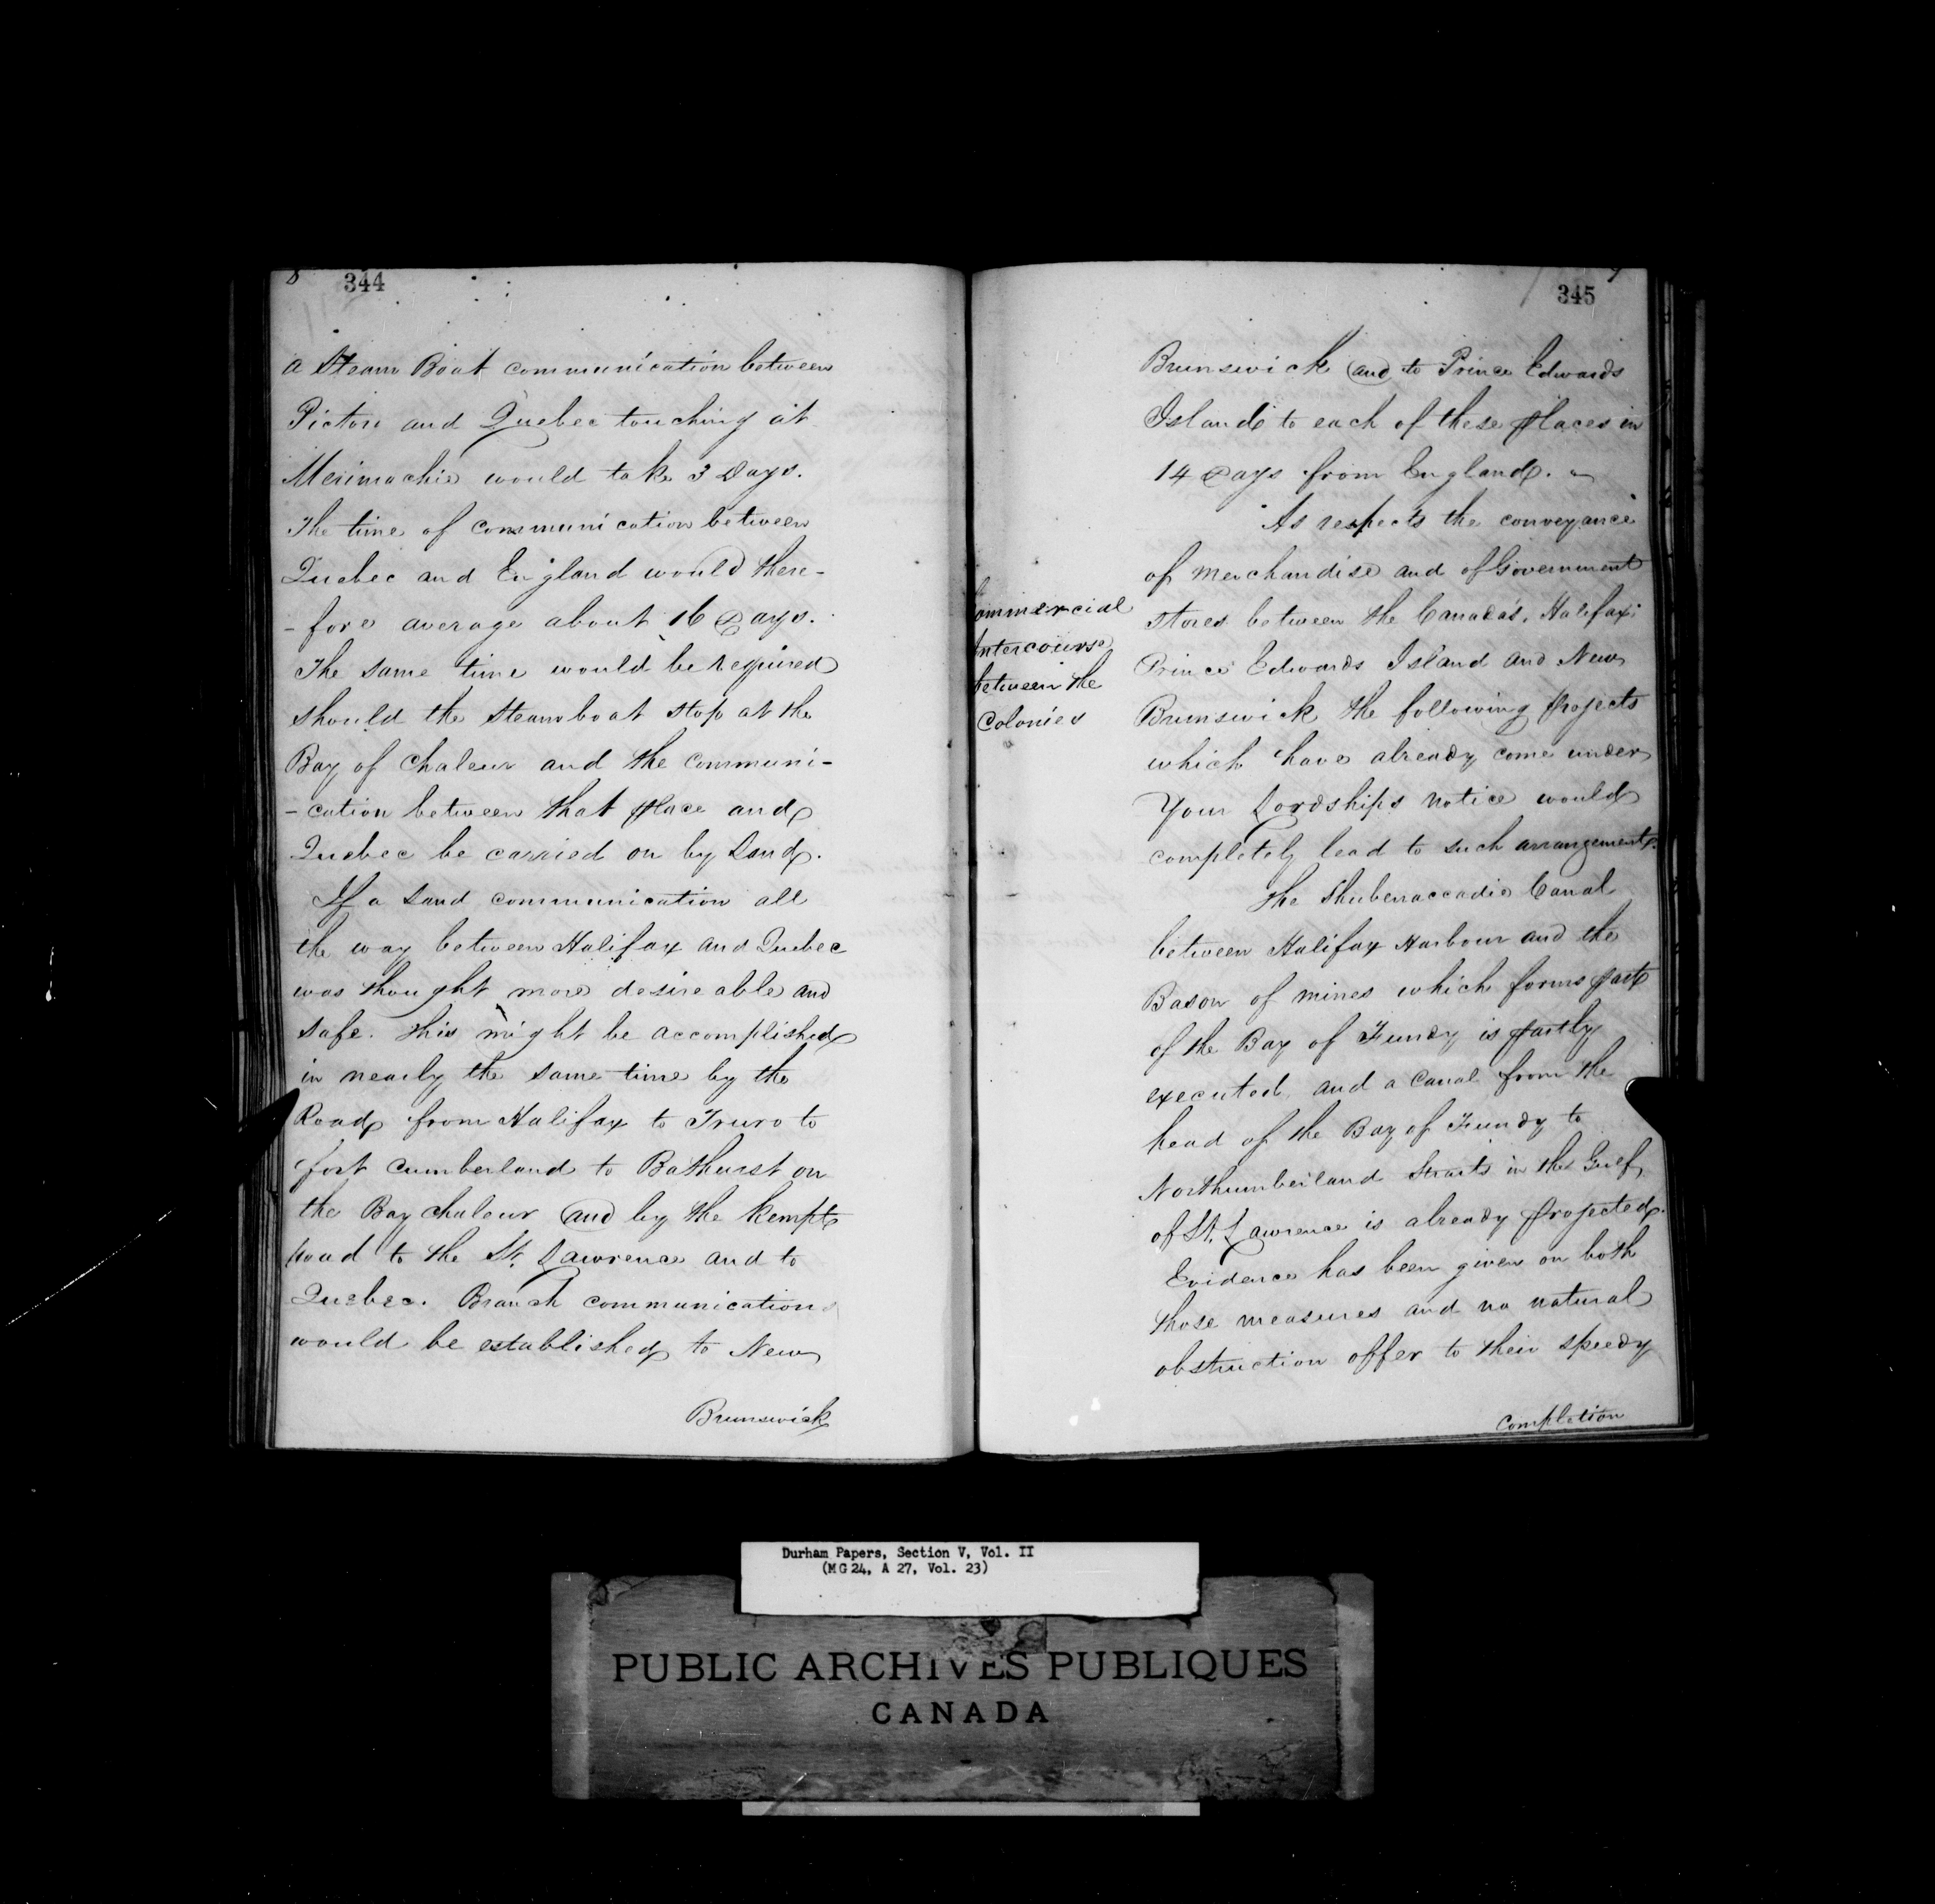 8 344
a Steam Boat communication between
Pictou and Quebec touching at
Merimachie would take 3 Days.
The time of communication between
Quebec and England would there-
-fore average about 16 Days.
The same time would be required
should the Steamboat stop at the
Bay of Chaleur and the communi-
-cation between that place and
Quebec be carried on by Land.
If a Land communication all
the way between Halifax and Quebec
was thought more desireable and
safe. This might be accomplished
in nearly the same time by the
Road from Halifax to Truro to
fort Cumberland to Bathurst on
the Bay Chaleur and by the Kempt
road to the St. Lawrence and to
Quebec. Branch communications
would be established to New
Brunswick
9
345
Brunswick and to Prince Edwards
Island to each of these places in
14 Days from England.
As respects the conveyance
of Merchandise and of Government
stores between the Canada's, Halifax,
Prince Edwards Island and New
Brunswick the following projects
which have already come under
Your Lordships notice would
completely lead to such arrangements.
Commercial
Intercourse
between the
Colonies
The Shubenaccadie Canal
between Halifax Harbour and the
Bason of mines which forms part
of the Bay of Fundy is partly
executed, and a Canal from the
head of the Bay of Fundy to
Northumberland Straits in the Gulf
of St. Lawrence is already projected.
Evidence has been given on both
those measures and no natural
obstruction offer to their speedy
completion
Durham Papers, Section V, Vol. II
(MG 24, A 27, Vol. 23)
PUBLIC ARCHIVES PUBLIQUES
CANADA